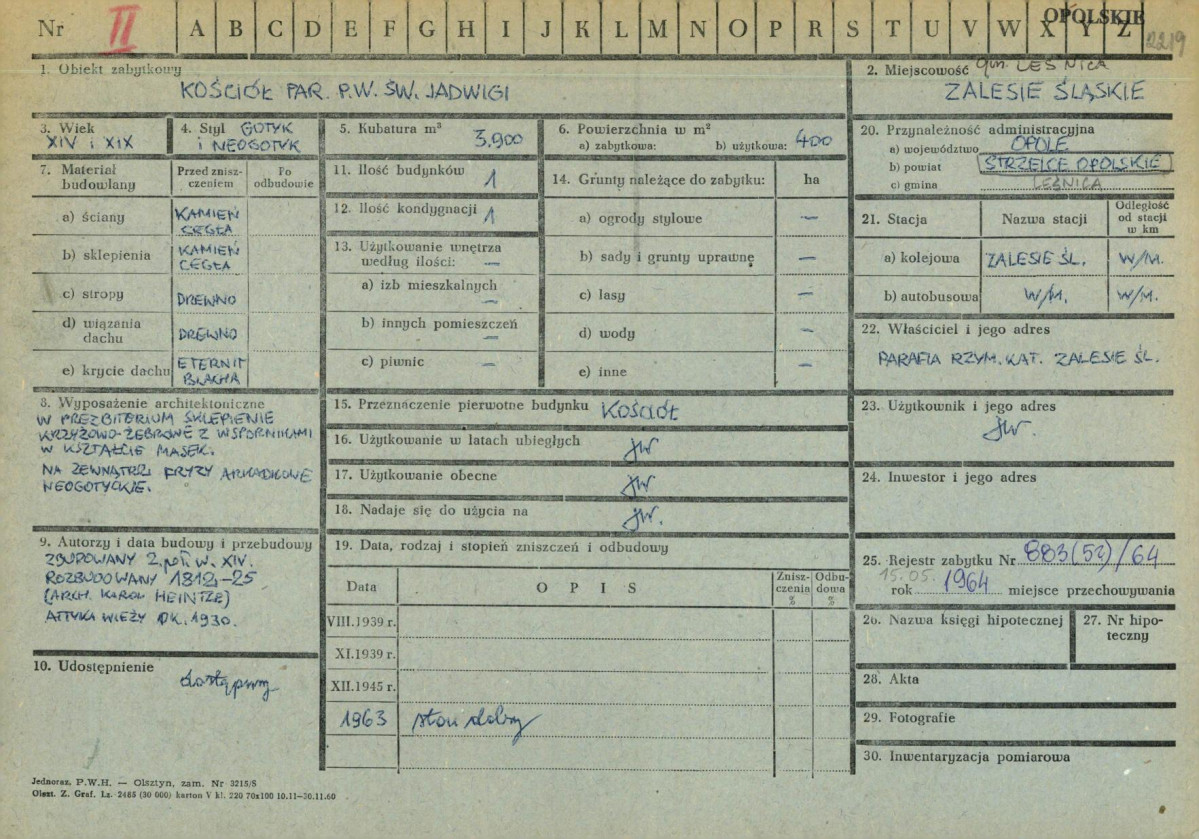 Nr II A B C D E F G H I J K L M N O P R S T U V W X Y Z
OPOLSKIE
2219
1. Obiekt zabytkowy
KOŚCIÓŁ PAR. P.W. ŚW. JADWIGI
2. Miejscowość gm. LEŚNICA
ZALESIE ŚLĄSKIE
3. Wiek
XIV i XIX
4. Styl GOTYK
i NEOGOTYK
5. Kubatura m³ 3.900
6. Powierzchnia w m²
a) zabytkowa: b) użytkowa: 400
20. Przynależność administracyjna
a) województwo OPOLE
b) powiat STRZELCE OPOLSKIE
c) gmina LEŚNICA
7. Materiał
budowlany
Przed znisz-
czeniem
Po
odbudowie
a) ściany KAMIEŃ
CEGŁA
b) sklepienia KAMIEŃ
CEGŁA
c) stropy DREWNO
d) wiązania
dachu DREWNO
e) krycie dachu ETERNIT
BLACHA
11. Ilość budynków 1
12. Ilość kondygnacji 1
13. Użytkowanie wnętrza
według ilości: —
a) izb mieszkalnych
—
b) innych pomieszczeń
—
c) piwnic —
14. Grunty należące do zabytku: ha
a) ogrody stylowe —
b) sady i grunty uprawne —
c) lasy —
d) wody —
e) inne —
21. Stacja Nazwa stacji Odległość
od stacji
w km
a) kolejowa ZALESIE ŚL. W/M.
b) autobusowa W/M. W/M.
22. Właściciel i jego adres
PARAFIA RZYM. KAT. ZALESIE ŚL.
8. Wyposażenie architektoniczne
W PREZBITERIUM SKLEPIENIE
KRZYŻOWO-ŻEBROWE Z WSPORNIKAMI
W KSZTAŁCIE MASEK.
NA ZEWNĄTRZ FRYZY ARKADKOWE
NEOGOTYCKIE.
15. Przeznaczenie pierwotne budynku KOŚCIÓŁ
16. Użytkowanie w latach ubiegłych jw
17. Użytkowanie obecne jw
18. Nadaje się do użycia na jw.
23. Użytkownik i jego adres
jw.
24. Inwestor i jego adres
9. Autorzy i data budowy i przebudowy
ZBUDOWANY 2. poł. w. XIV.
ROZBUDOWANY 1812-25
(ARCH. KAROL HEINTZE)
ATTYKA WIEŻY OK. 1930.
10. Udostępnienie
dostępny
19. Data, rodzaj i stopień zniszczeń i odbudowy
Data OPIS Znisz-
czenia
%
Odbu-
dowa
%
VIII.1939 r.
XI.1939 r.
XII.1945 r.
1963 stan dobry
25. Rejestr zabytku Nr 883(53)/64
15.05.
rok 1964 miejsce przechowywania
26. Nazwa księgi hipotecznej
27. Nr hipo-
teczny
28. Akta
29. Fotografie
30. Inwentaryzacja pomiarowa
Jednoraz. P.W.H. — Olsztyn, zam. Nr 3215/S
Olszt. Z. Graf. Lz. 2485 (30 000) karton V kl. 220 70x100 10.11—30.11.60